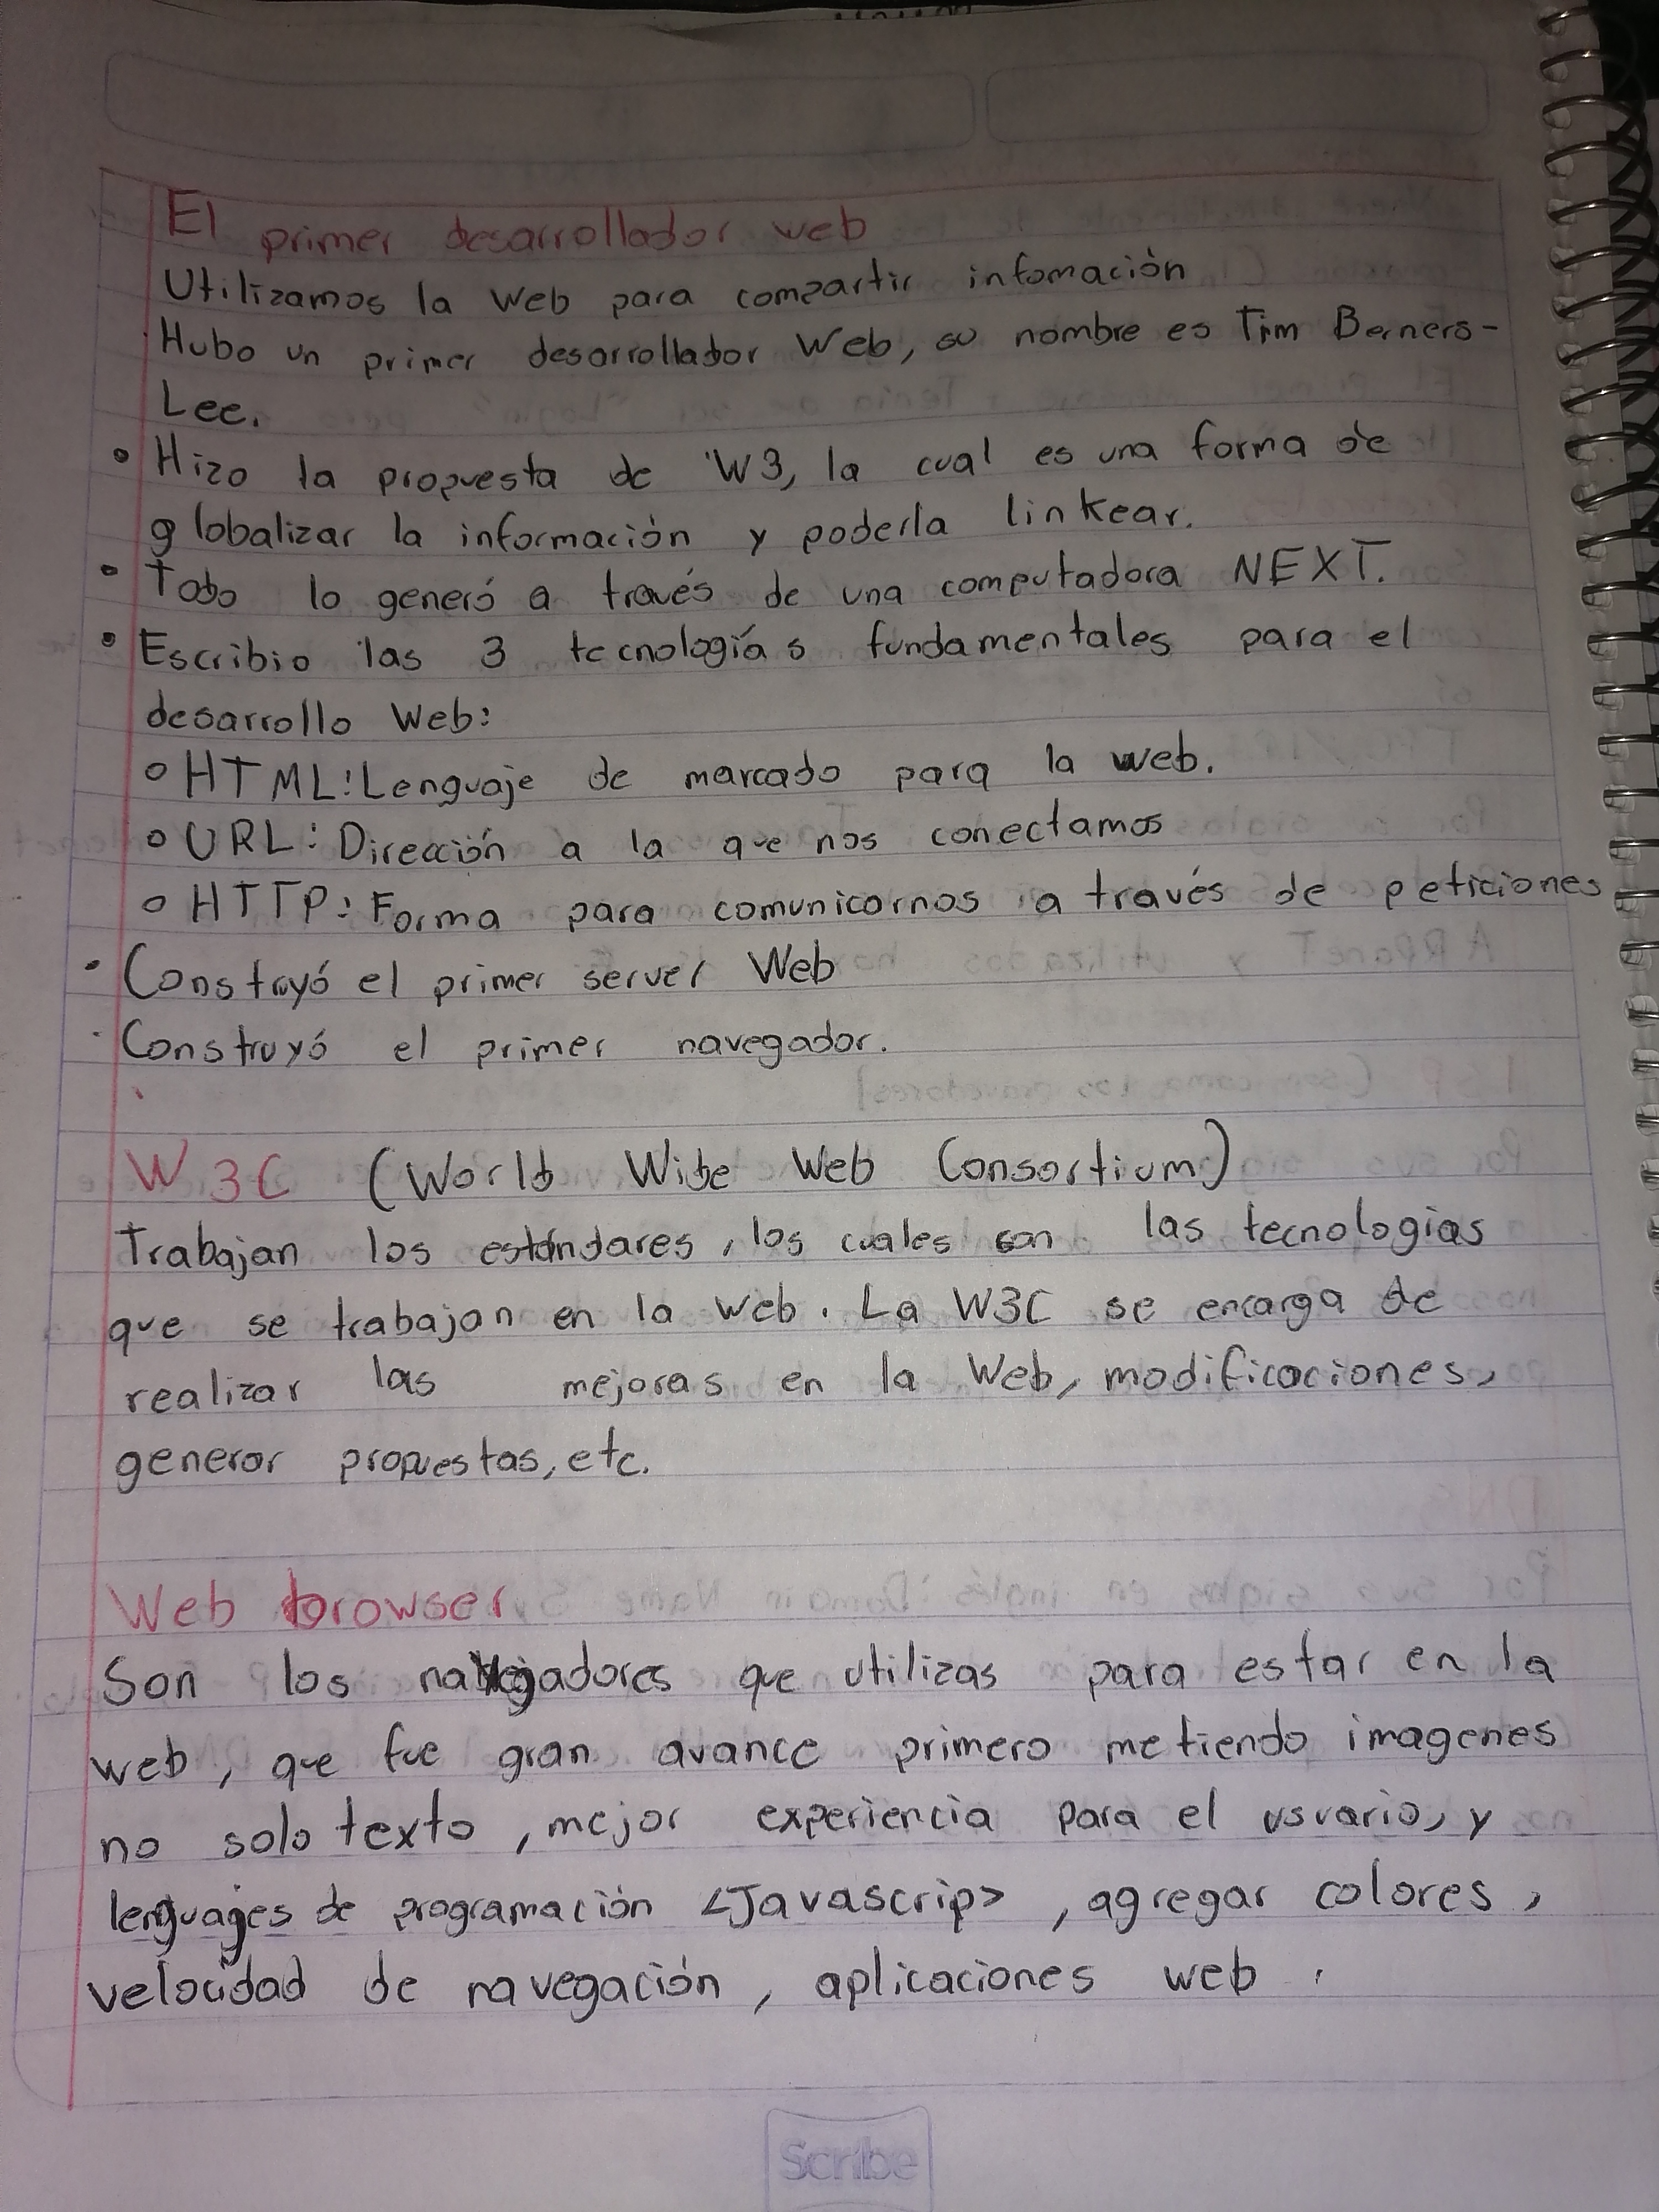 El primer desarrollador web
Utilizamos la Web para compartir infomación
Hubo un primer desarrollador Web, su nombre es Tim Berners-
Lee.
• Hizo la propuesta de W3, la cual es una forma de
globalizar la información y poderla linkear.
• Todo lo generó a través de una computadora NEXT.
• Escribio las 3 tecnologías fundamentales para el
desarrollo Web:
○ HTML: Lenguaje de marcado para la web.
○ URL: Dirección a la que nos conectamos
○ HTTP: Forma para comunicarnos a través de peticiones
• Construyó el primer server Web
• Construyó el primer navegador.
W3C (World Wide Web Consortium)
Trabajan los estándares, los cuales son las tecnologias
que se trabajan en la web. La W3C se encarga de
realizar las mejoras en la Web, modificaciones,
generar propuestas, etc.
Web browser
Son los navegadores que utilizas para estar en la
web, que fue gran avance primero metiendo imagenes
no solo texto, mejor experiencia para el usuario, y
lenguages de programación <Javascrip>, agregar colores,
velocidad de navegación, aplicaciones web.
Scribe